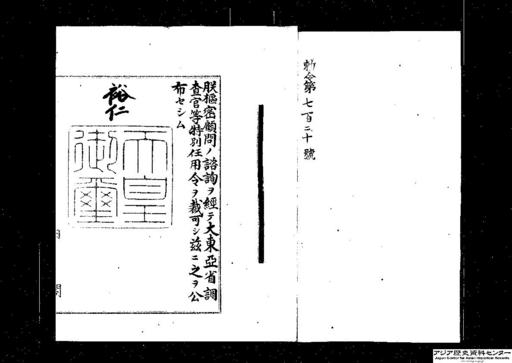 勅令第七百二十號
朕樞密顧問ノ諮詢ヲ經テ大東亞省調
査官等特別任用令ヲ裁可シ茲ニ之ヲ公
布セシム
裕仁
天皇
御璽
アジア歴史資料センター
Japan Center for Asian Historical Records